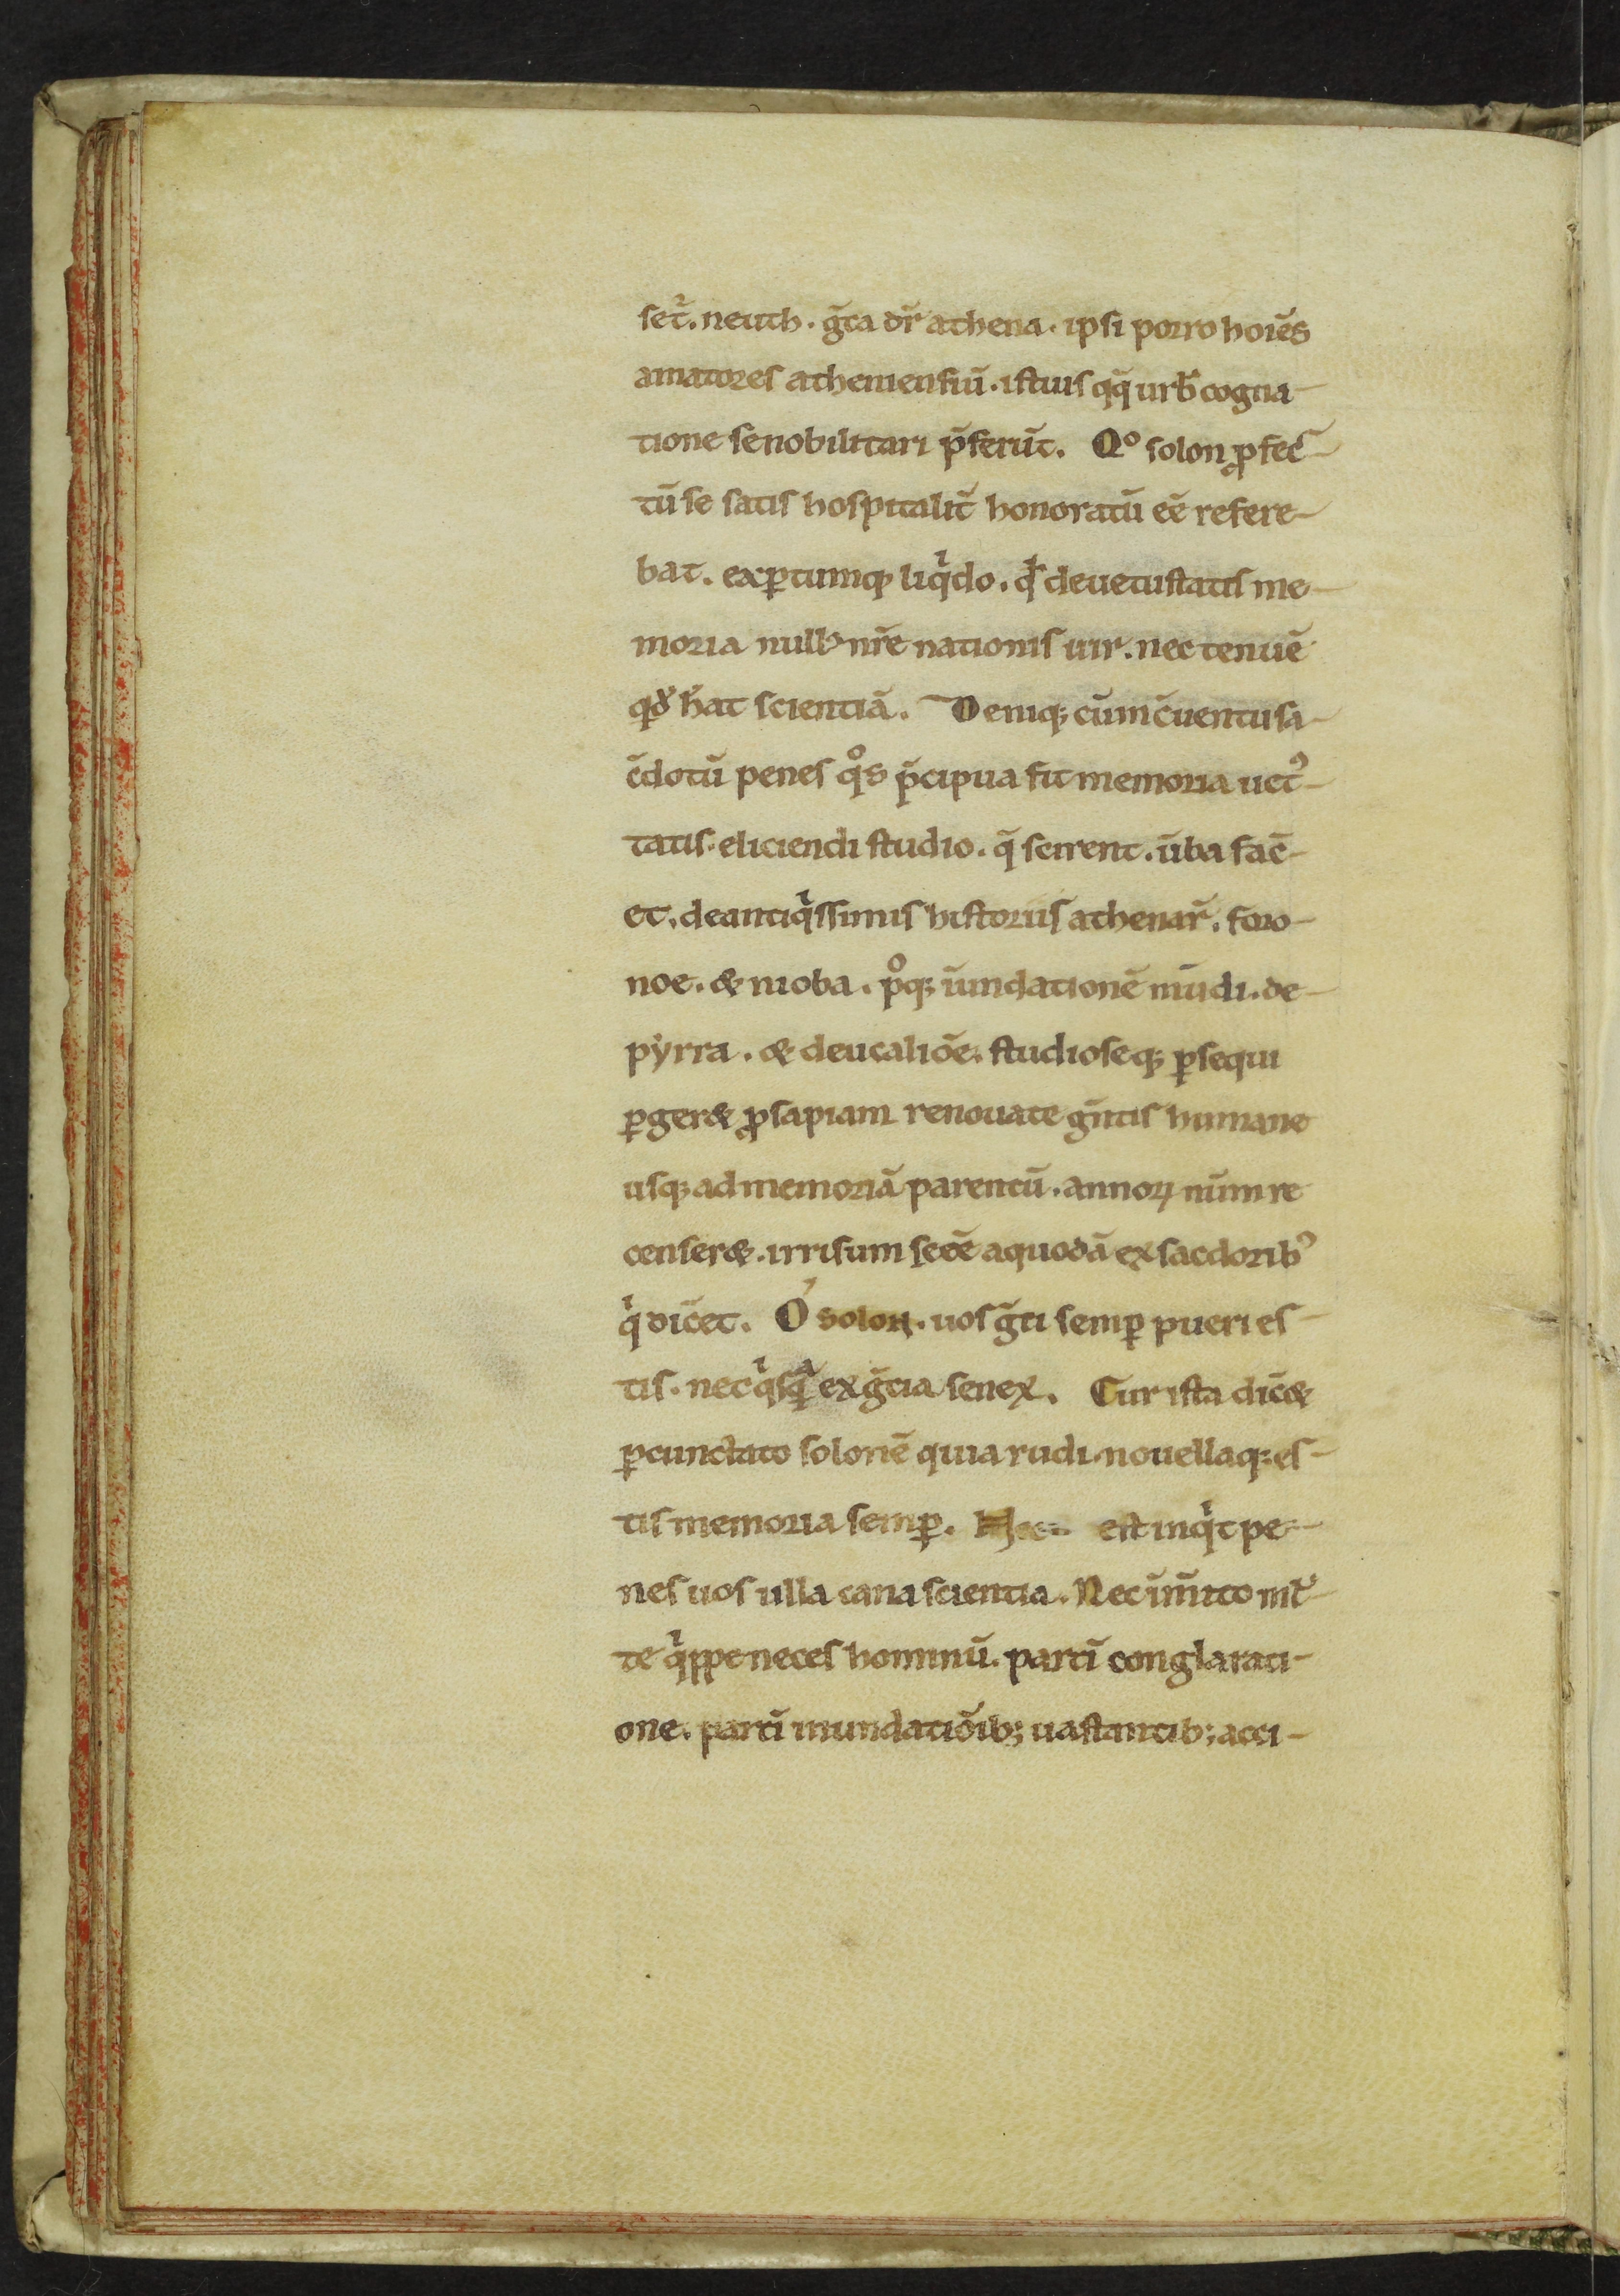 set᷑. neuth. g̅ca dr̃ athena. ipsi porro hoiẽs
amatores atheniensiũ. istius qq̃ urb̃ cogna-
tione se nobilitari p̃ferũt. Qͦ solon ꝓfec̃-
tũ se satis hospitalit̃ honoratũ eẽ refere-
bat. exꝑtumq; liq̇do. qͩ de uetustatis me-
moria null᷒ nr̃e nationis uir. nec tenuẽ
qͩdẽ h̃at scientiã. Deniq; cũ in c̃uentu sa-
c̃dotũ penes qͦs p̃cipua sit memoria uet᷒-
tatis. eliciendi studio. q̃ scirent. ũba fac̃-
et. de antiqͥssimis historiis athenar̃. foro-
noe. & nioba. pͦq; iũndationẽ mũdi. de
pẏrra. & deucaliõe. studioseq; ꝑsequi
ꝑger& ꝓsapiam renouate gñtis humane
usq; ad memoriã parentũ. annoꝝ nũm re
censer&. irrisum se eẽ a quodã ex sacdotib᷒
qͥ dic̃et. O solon. uos g̃ci semꝑ pueri es-
tis. nec qͥsqᷓ ex g̃cia senex. Cur ista dic̃&
ꝑcunctato solonẽ quia rudi. nouellaq; es-
tis memoria semꝑ. est inqͥt pe-
nes uos ulla cana scientia. Nec ĩmito ml̃-
te qͥppe neces hominũ. partĩ conglarati-
one. partĩ inundatiõib; uastantib; acci-